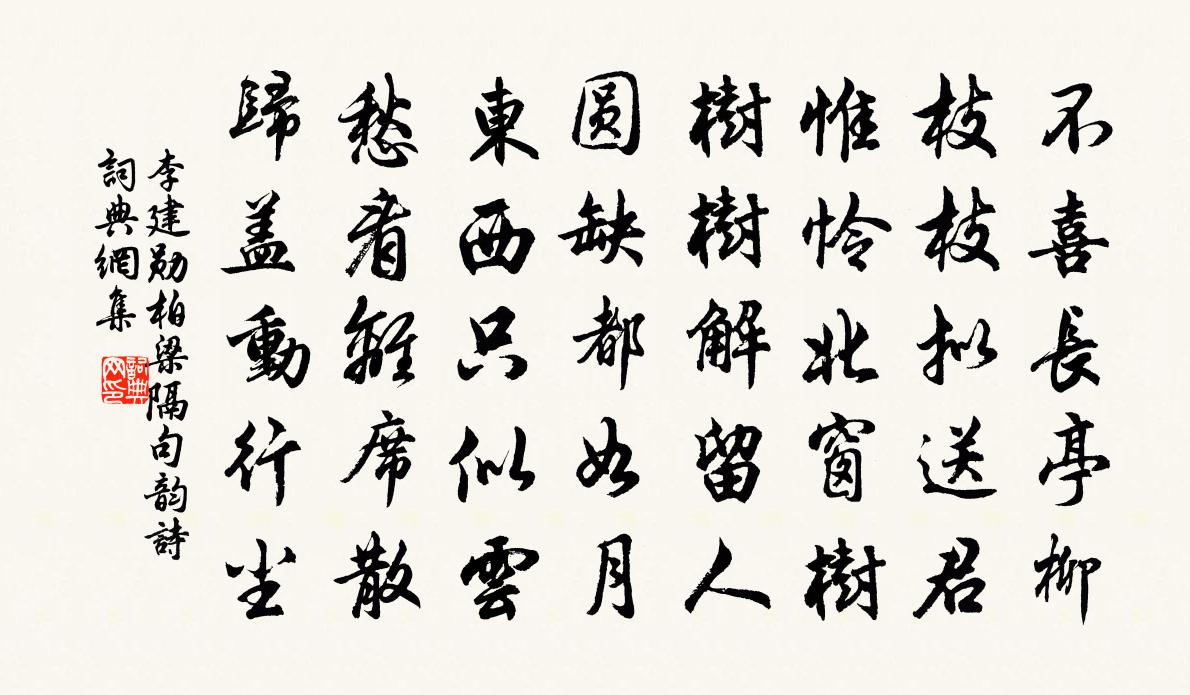 不喜長亭柳
枝枝拟送君
惟怜北窗樹
樹樹解留人
圆缺都如月
東西只似雲
愁看離席散
歸盖動行尘
李建勛柏梁隔句韵詩
詞典網集
詞典
网印